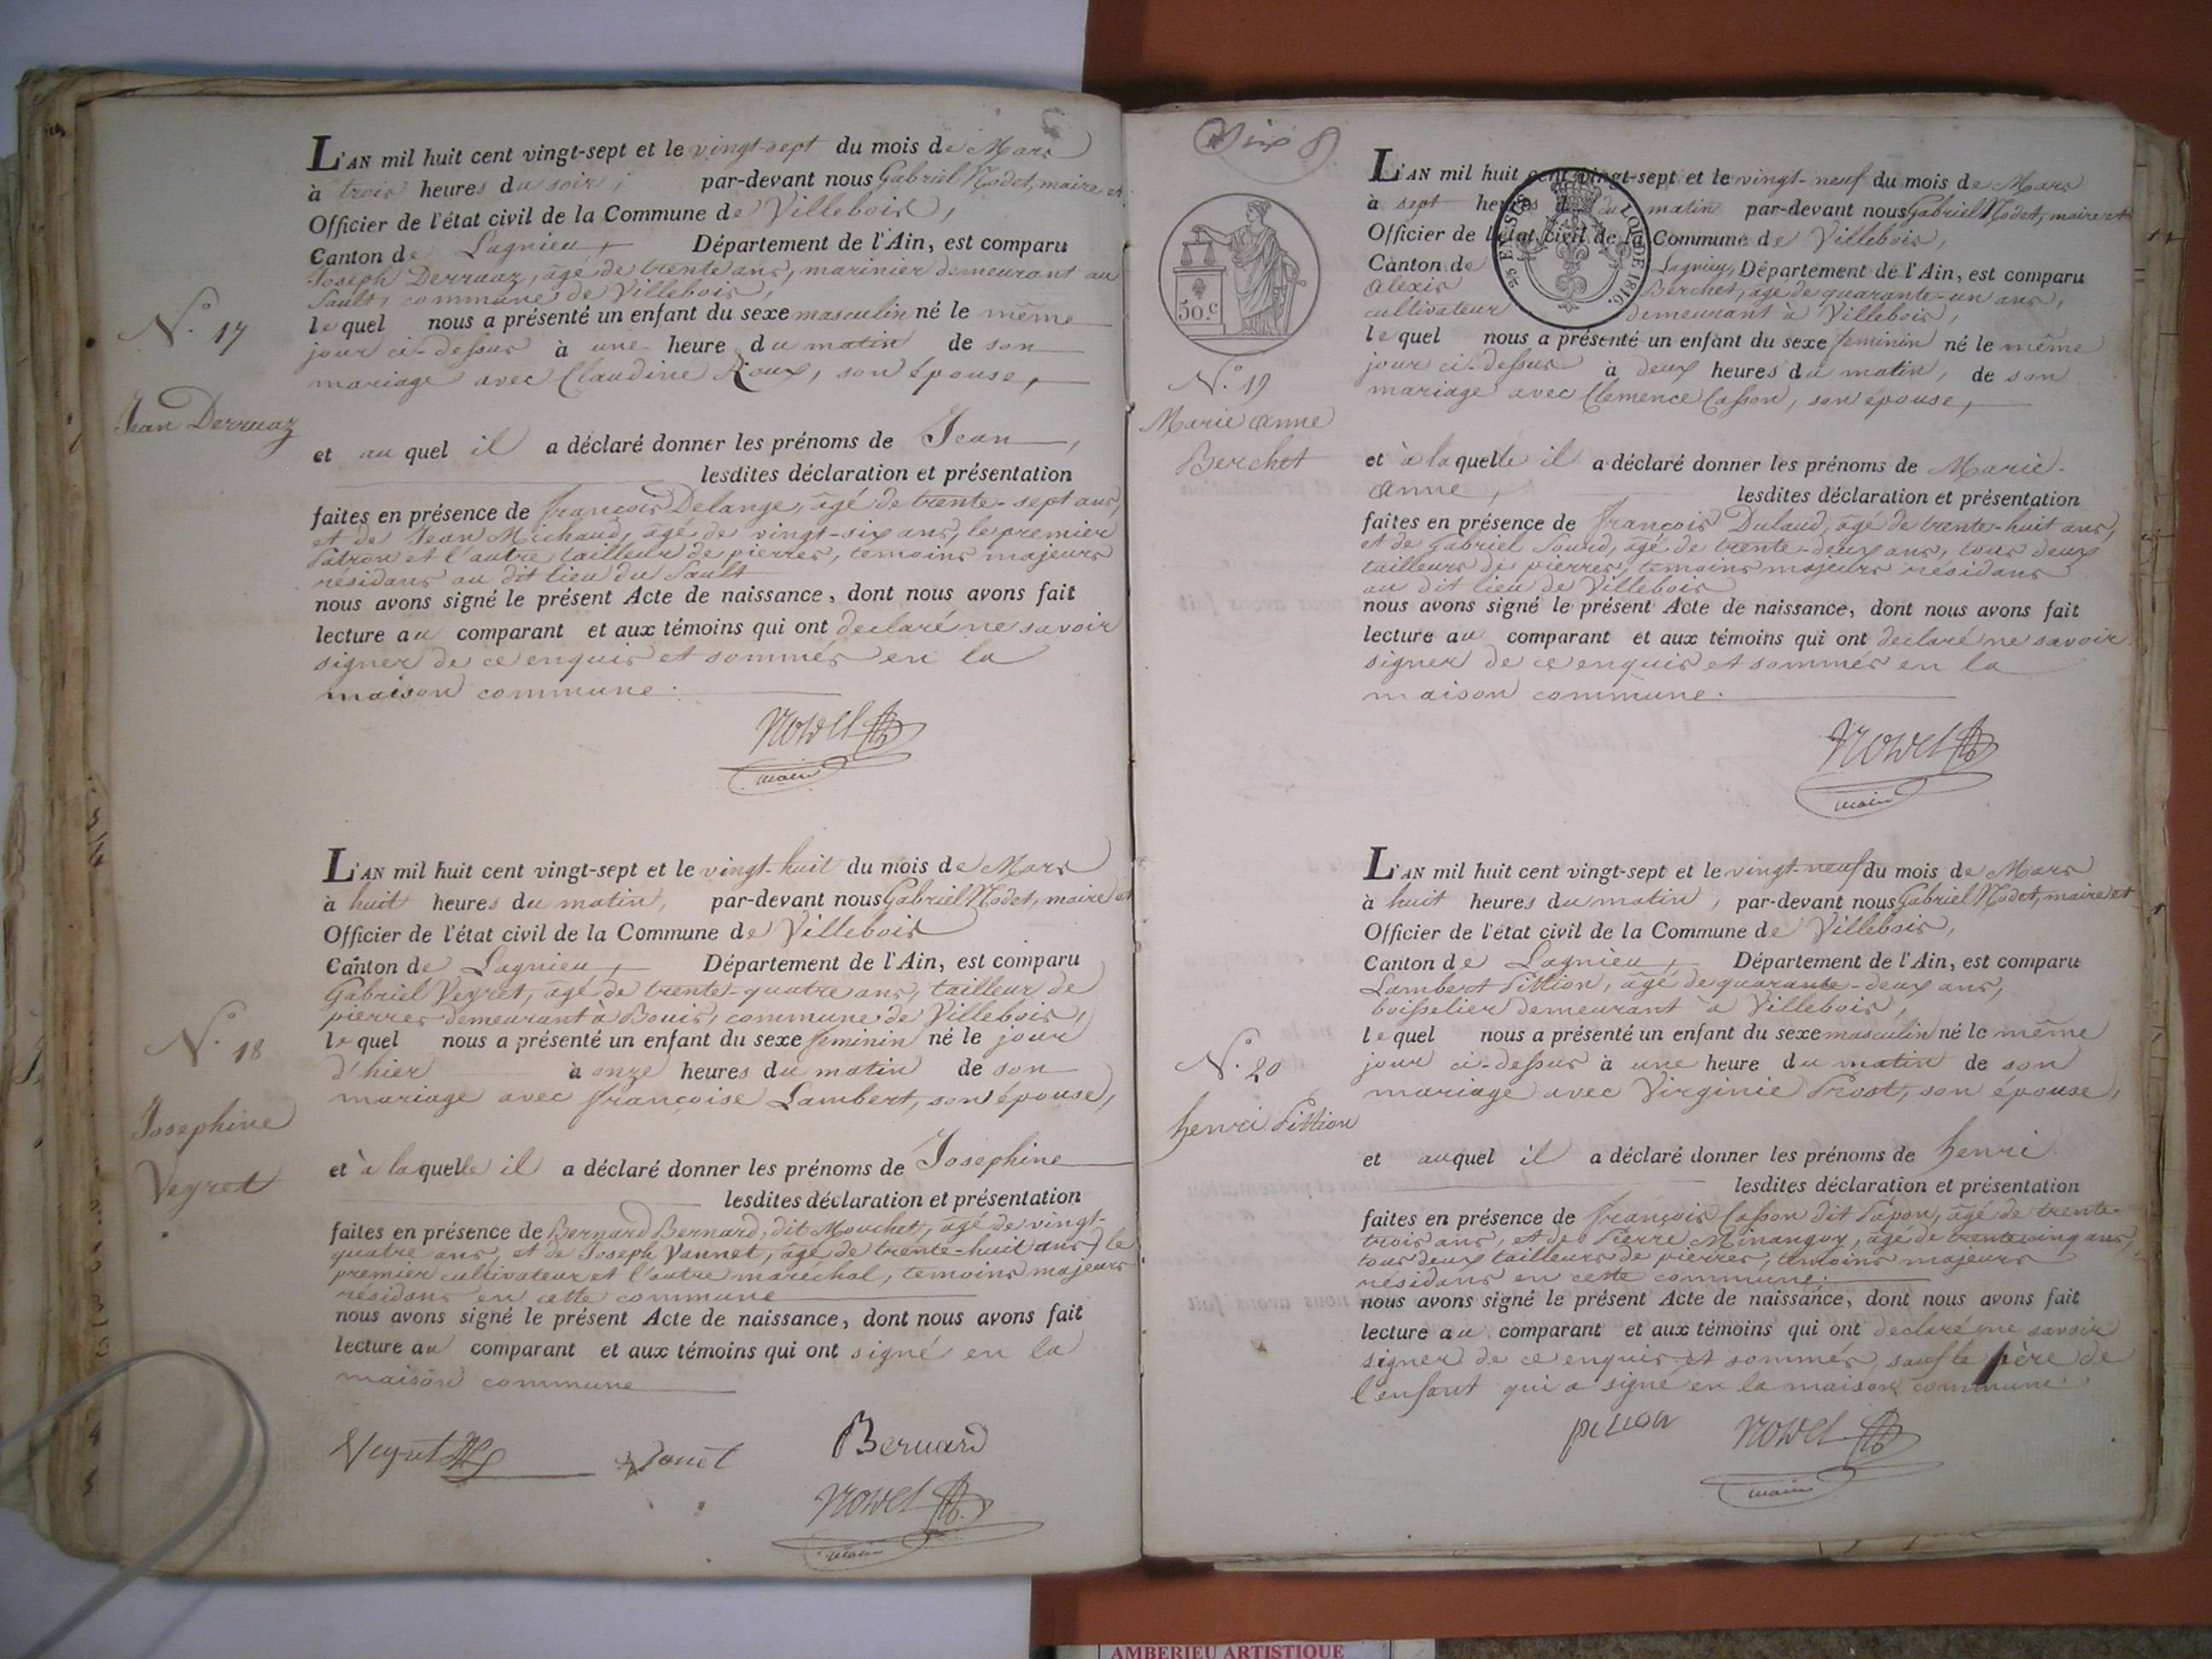 N.° 17
Jean Derruaz
L'AN mil huit cent vingt-sept et le vingt-sept du mois de Mars
à trois heures du soir, par-devant nous Gabriel Nodet, maire et
Officier de l'état civil de la Commune de Villebois,
Canton de Lagnieu, Département de l'Ain, est comparu
Joseph Derruaz, âgé de trente ans, marinier demeurant au
Sault, commune de Villebois,
lequel nous a présenté un enfant du sexe masculin né le même
jour ci-dessus à une heure du matin de son
mariage avec Claudine Roux, son épouse,
et au quel il a déclaré donner les prénoms de Jean,
lesdites déclaration et présentation
faites en présence de françois Delange, âgé de trente-sept ans,
et de Jean Michaud, âgé de vingt-six ans, le premier
Patron et l'autre tailleur de pierres, temoins majeurs
résidans au dit lieu du Sault
nous avons signé le présent Acte de naissance, dont nous avons fait
lecture au comparant et aux témoins qui ont declaré ne savoir
signer de ce enquis et sommés en la
maison commune.
maire
N.° 18
Josephine
Veyret
L'AN mil huit cent vingt-sept et le vingt-huit du mois de Mars
à huit heures du matin, par-devant nous Gabriel Nodet, maire et
Officier de l'état civil de la Commune de Villebois
Canton de Lagnieu, Département de l'Ain, est comparu
Gabriel Veyret, âgé de trente-quatre ans, tailleur de
pierres demeurant à Bouis, commune de Villebois,
lequel nous a présenté un enfant du sexe feminin né le jour
d'hier à onze heures du matin de son
mariage avec françoise Lambert, son épouse,
et à laquelle il a déclaré donner les prénoms de Josephine
lesdites déclaration et présentation
faites en présence de Bernard Bernard, dit Mouchet, âgé de vingt-
quatre ans, et de Joseph Vannet, âgé de trente-huit ans, le
premier cultivateur et l'autre maréchal, temoins majeurs
résidans en cette commune
nous avons signé le présent Acte de naissance, dont nous avons fait
lecture au comparant et aux témoins qui ont signé en la
maison commune
Veyret Bernard
maire
50.c
N.° 19
Marie anne
Berchet
L'AN mil huit cent vingt-sept et le vingt-neuf du mois de Mars
à sept heures du matin par-devant nous Gabriel Nodet, maire et
Officier de l'état civil de la Commune de Villebois,
Canton de Lagnieu, Département de l'Ain, est comparu
alexis Berchet, âgé de quarante-un ans,
cultivateur demeurant à Villebois,
lequel nous a présenté un enfant du sexe feminin né le même
jour ci-dessus à deux heures du matin, de son
mariage avec Clemence Casson, son épouse,
et à laquelle il a déclaré donner les prénoms de Marie-
anne, lesdites déclaration et présentation
faites en présence de françois Dulaud, âgé de trente-huit ans,
et de Gabriel Sourd, âgé de trente-deux ans, tous deux
tailleurs de pierres, temoins majeurs résidans
au dit lieu de Villebois
nous avons signé le présent Acte de naissance, dont nous avons fait
lecture au comparant et aux témoins qui ont declaré ne savoir
signer de ce enquis et sommés en la
maison commune.
maire
N.° 20
henri Pittion
L'AN mil huit cent vingt-sept et le vingt-neuf du mois de Mars
à huit heures du matin, par-devant nous Gabriel Nodet, maire et
Officier de l'état civil de la Commune de Villebois,
Canton de Lagnieu, Département de l'Ain, est comparu
Lambert Pittion, âgé de quarante-deux ans,
boisselier demeurant à Villebois,
lequel nous a présenté un enfant du sexe masculin né le même
jour ci-dessus à une heure du matin de son
mariage avec Virginie Prost, son épouse,
et auquel il a déclaré donner les prénoms de henri
lesdites déclaration et présentation
faites en présence de françois Casson dit Papon, âgé de trente-
trois ans, et de Pierre Minanguy, âgé de trente cinq ans,
tous deux tailleurs de pierres, temoins majeurs
résidans en cette commune.
nous avons signé le présent Acte de naissance, dont nous avons fait
lecture au comparant et aux témoins qui ont declaré ne savoir
signer de ce enquis et sommés, sauf le père de
l'enfant qui a signé en la maison commune.
maire
AMBERIEU ARTISTIQUE